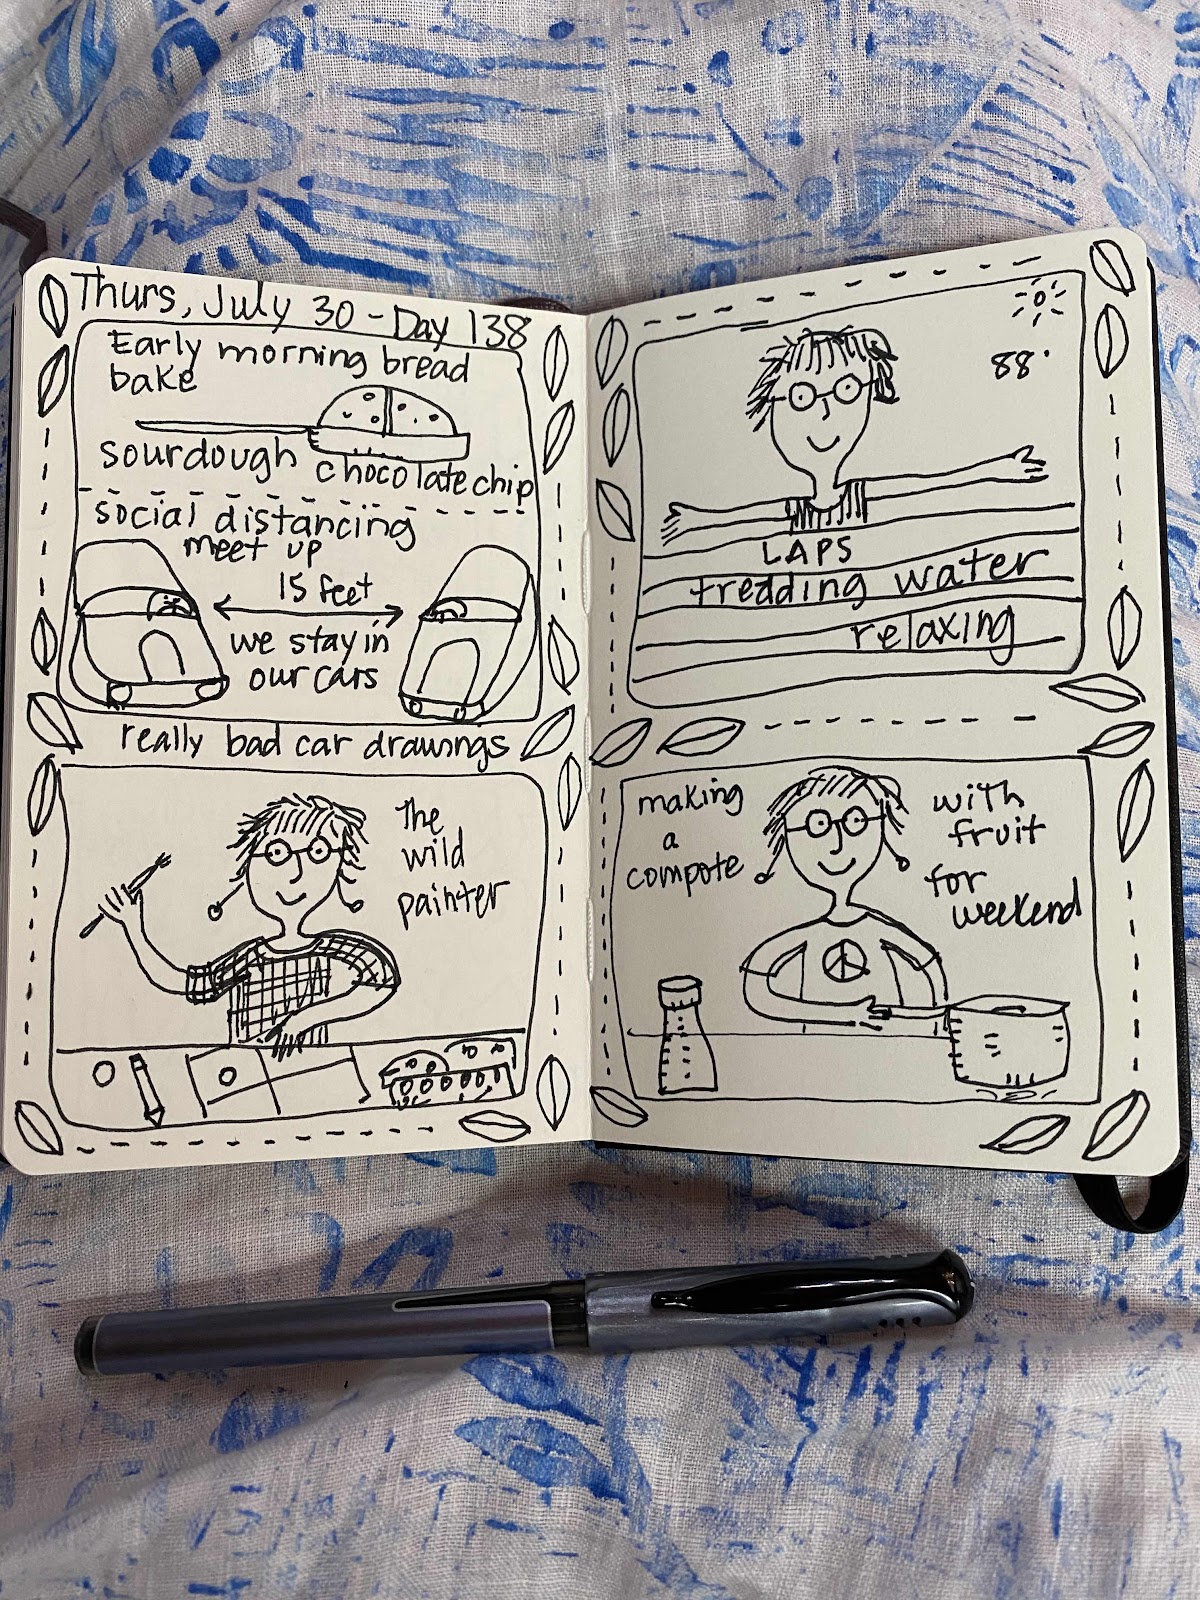 Thurs, July 30 - Day 138
Early morning bread
bake
sourdough chocolate chip
social distancing
meet up
15 feet
we stay in
our cars
really bad car drawings
The
wild
painter
88°
LAPS
tredding water
relaxing
making
a
compote
with
fruit
for
weekend